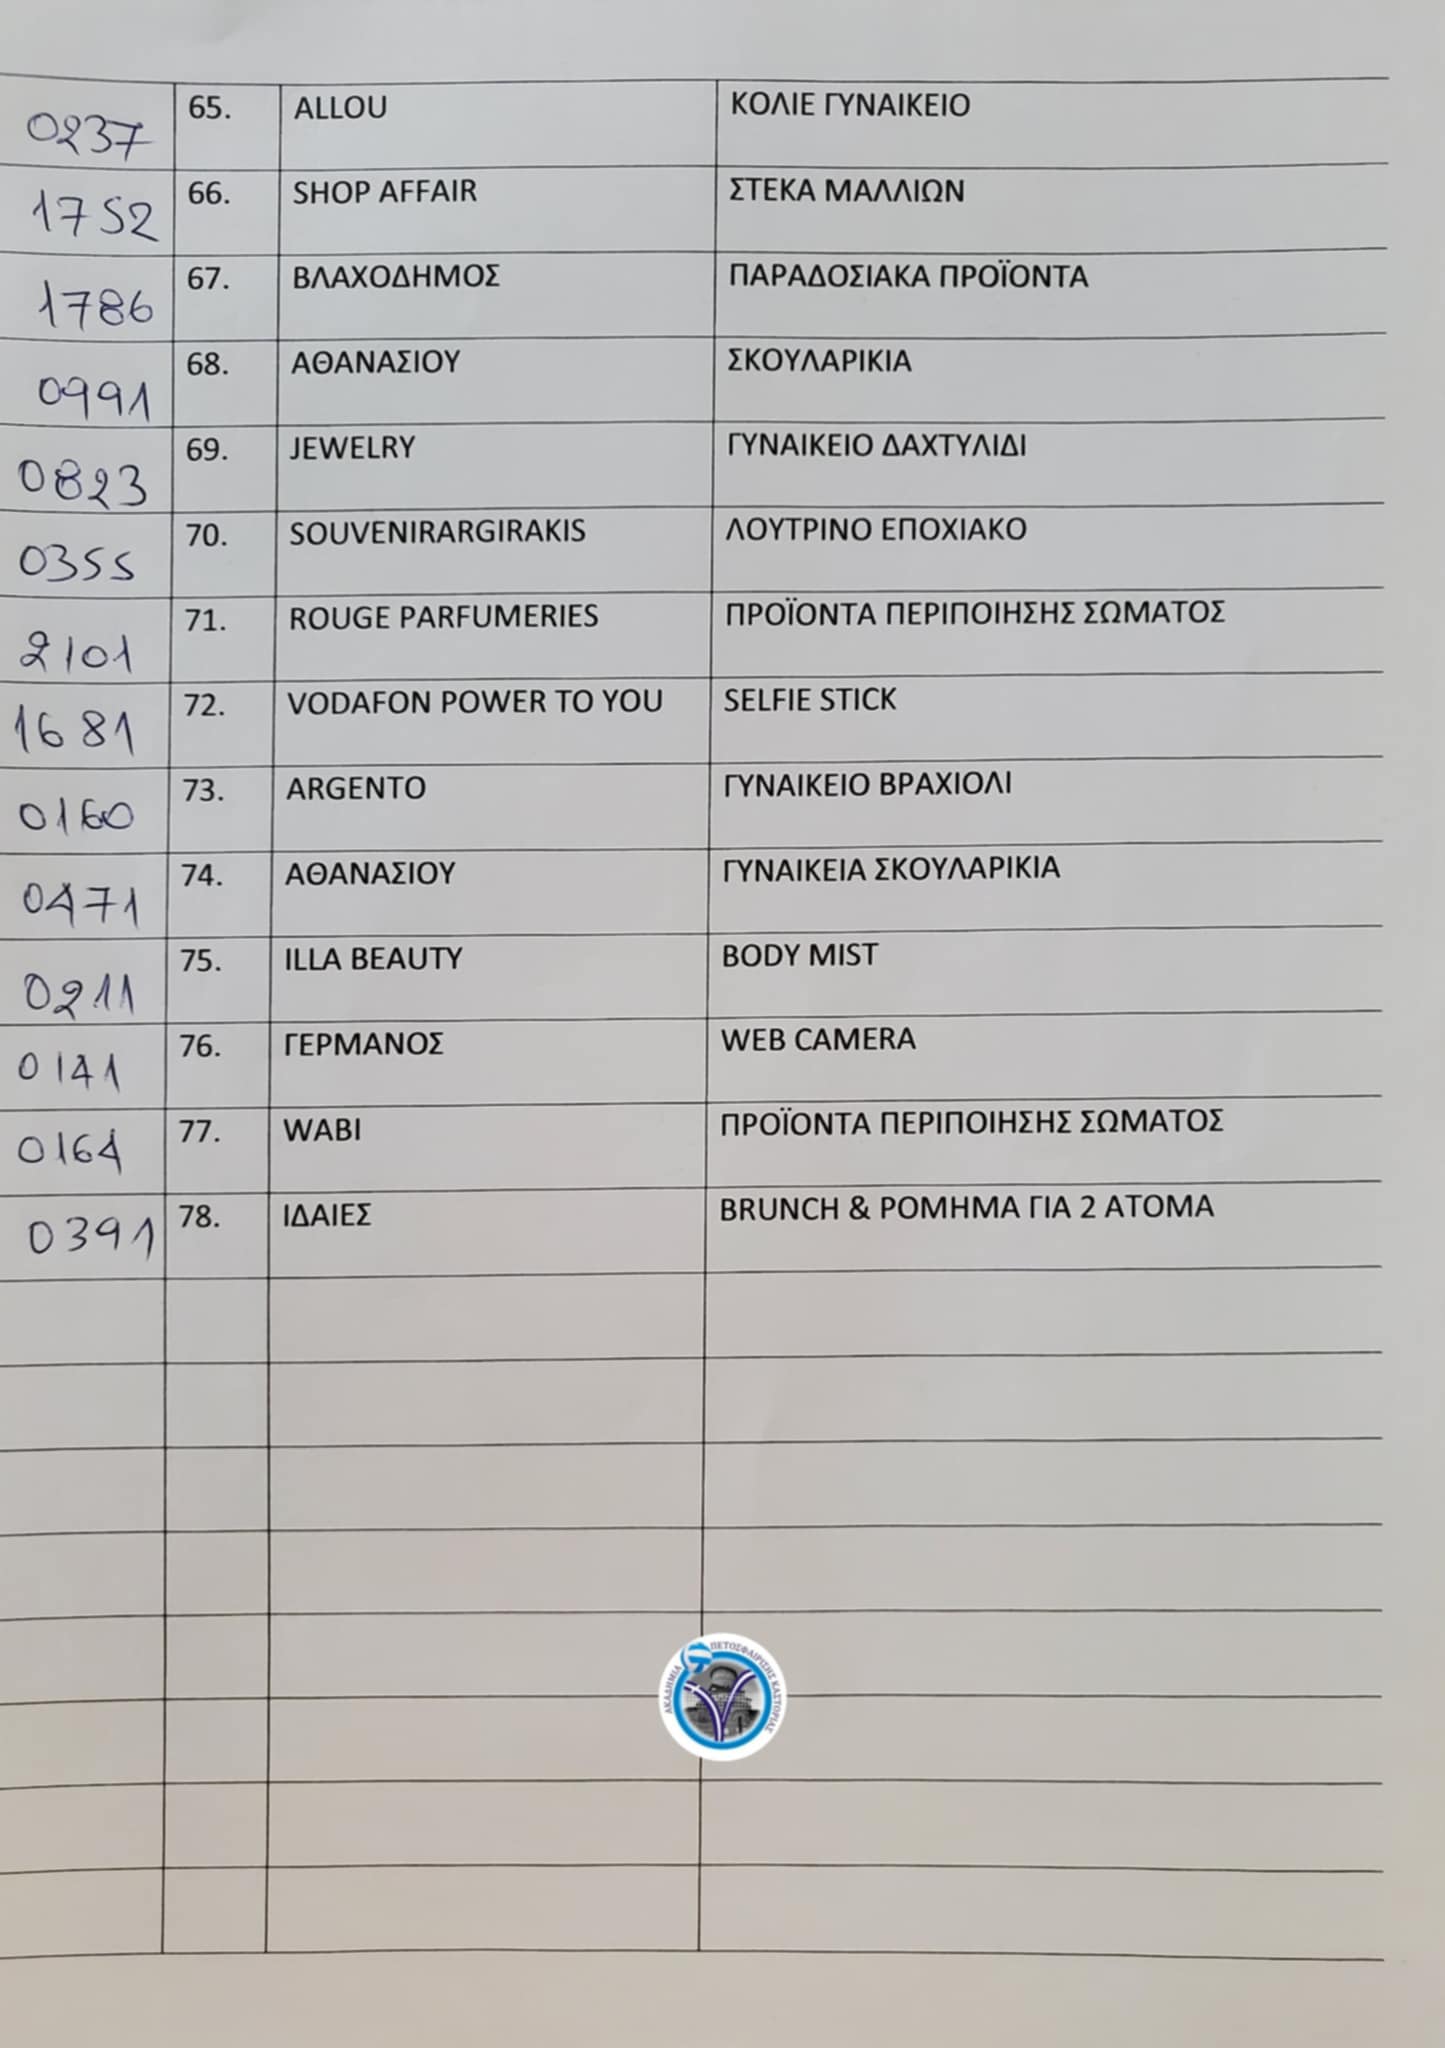 0237 65. ALLOU ΚΟΛΙΕ ΓΥΝΑΙΚΕΙΟ
1752 66. SHOP AFFAIR ΣΤΕΚΑ ΜΑΛΛΙΩΝ
1786 67. ΒΛΑΧΟΔΗΜΟΣ ΠΑΡΑΔΟΣΙΑΚΑ ΠΡΟΪΟΝΤΑ
0991 68. ΑΘΑΝΑΣΙΟΥ ΣΚΟΥΛΑΡΙΚΙΑ
0823 69. JEWELRY ΓΥΝΑΙΚΕΙΟ ΔΑΧΤΥΛΙΔΙ
0355 70. SOUVENIRARGIRAKIS ΛΟΥΤΡΙΝΟ ΕΠΟΧΙΑΚΟ
2101 71. ROUGE PARFUMERIES ΠΡΟΪΟΝΤΑ ΠΕΡΙΠΟΙΗΣΗΣ ΣΩΜΑΤΟΣ
1681 72. VODAFON POWER TO YOU SELFIE STICK
0160 73. ARGENTO ΓΥΝΑΙΚΕΙΟ ΒΡΑΧΙΟΛΙ
0471 74. ΑΘΑΝΑΣΙΟΥ ΓΥΝΑΙΚΕΙΑ ΣΚΟΥΛΑΡΙΚΙΑ
0211 75. ILLA BEAUTY BODY MIST
0141 76. ΓΕΡΜΑΝΟΣ WEB CAMERA
0164 77. WABI ΠΡΟΪΟΝΤΑ ΠΕΡΙΠΟΙΗΣΗΣ ΣΩΜΑΤΟΣ
0391 78. ΙΔΑΙΕΣ BRUNCH & ΡΟΜΗΜΑ ΓΙΑ 2 ΑΤΟΜΑ
ΑΚΑΔΗΜΙΑ ΠΕΤΟΣΦΑΙΡΙΣΗΣ ΚΑΣΤΟΡΙΑΣ